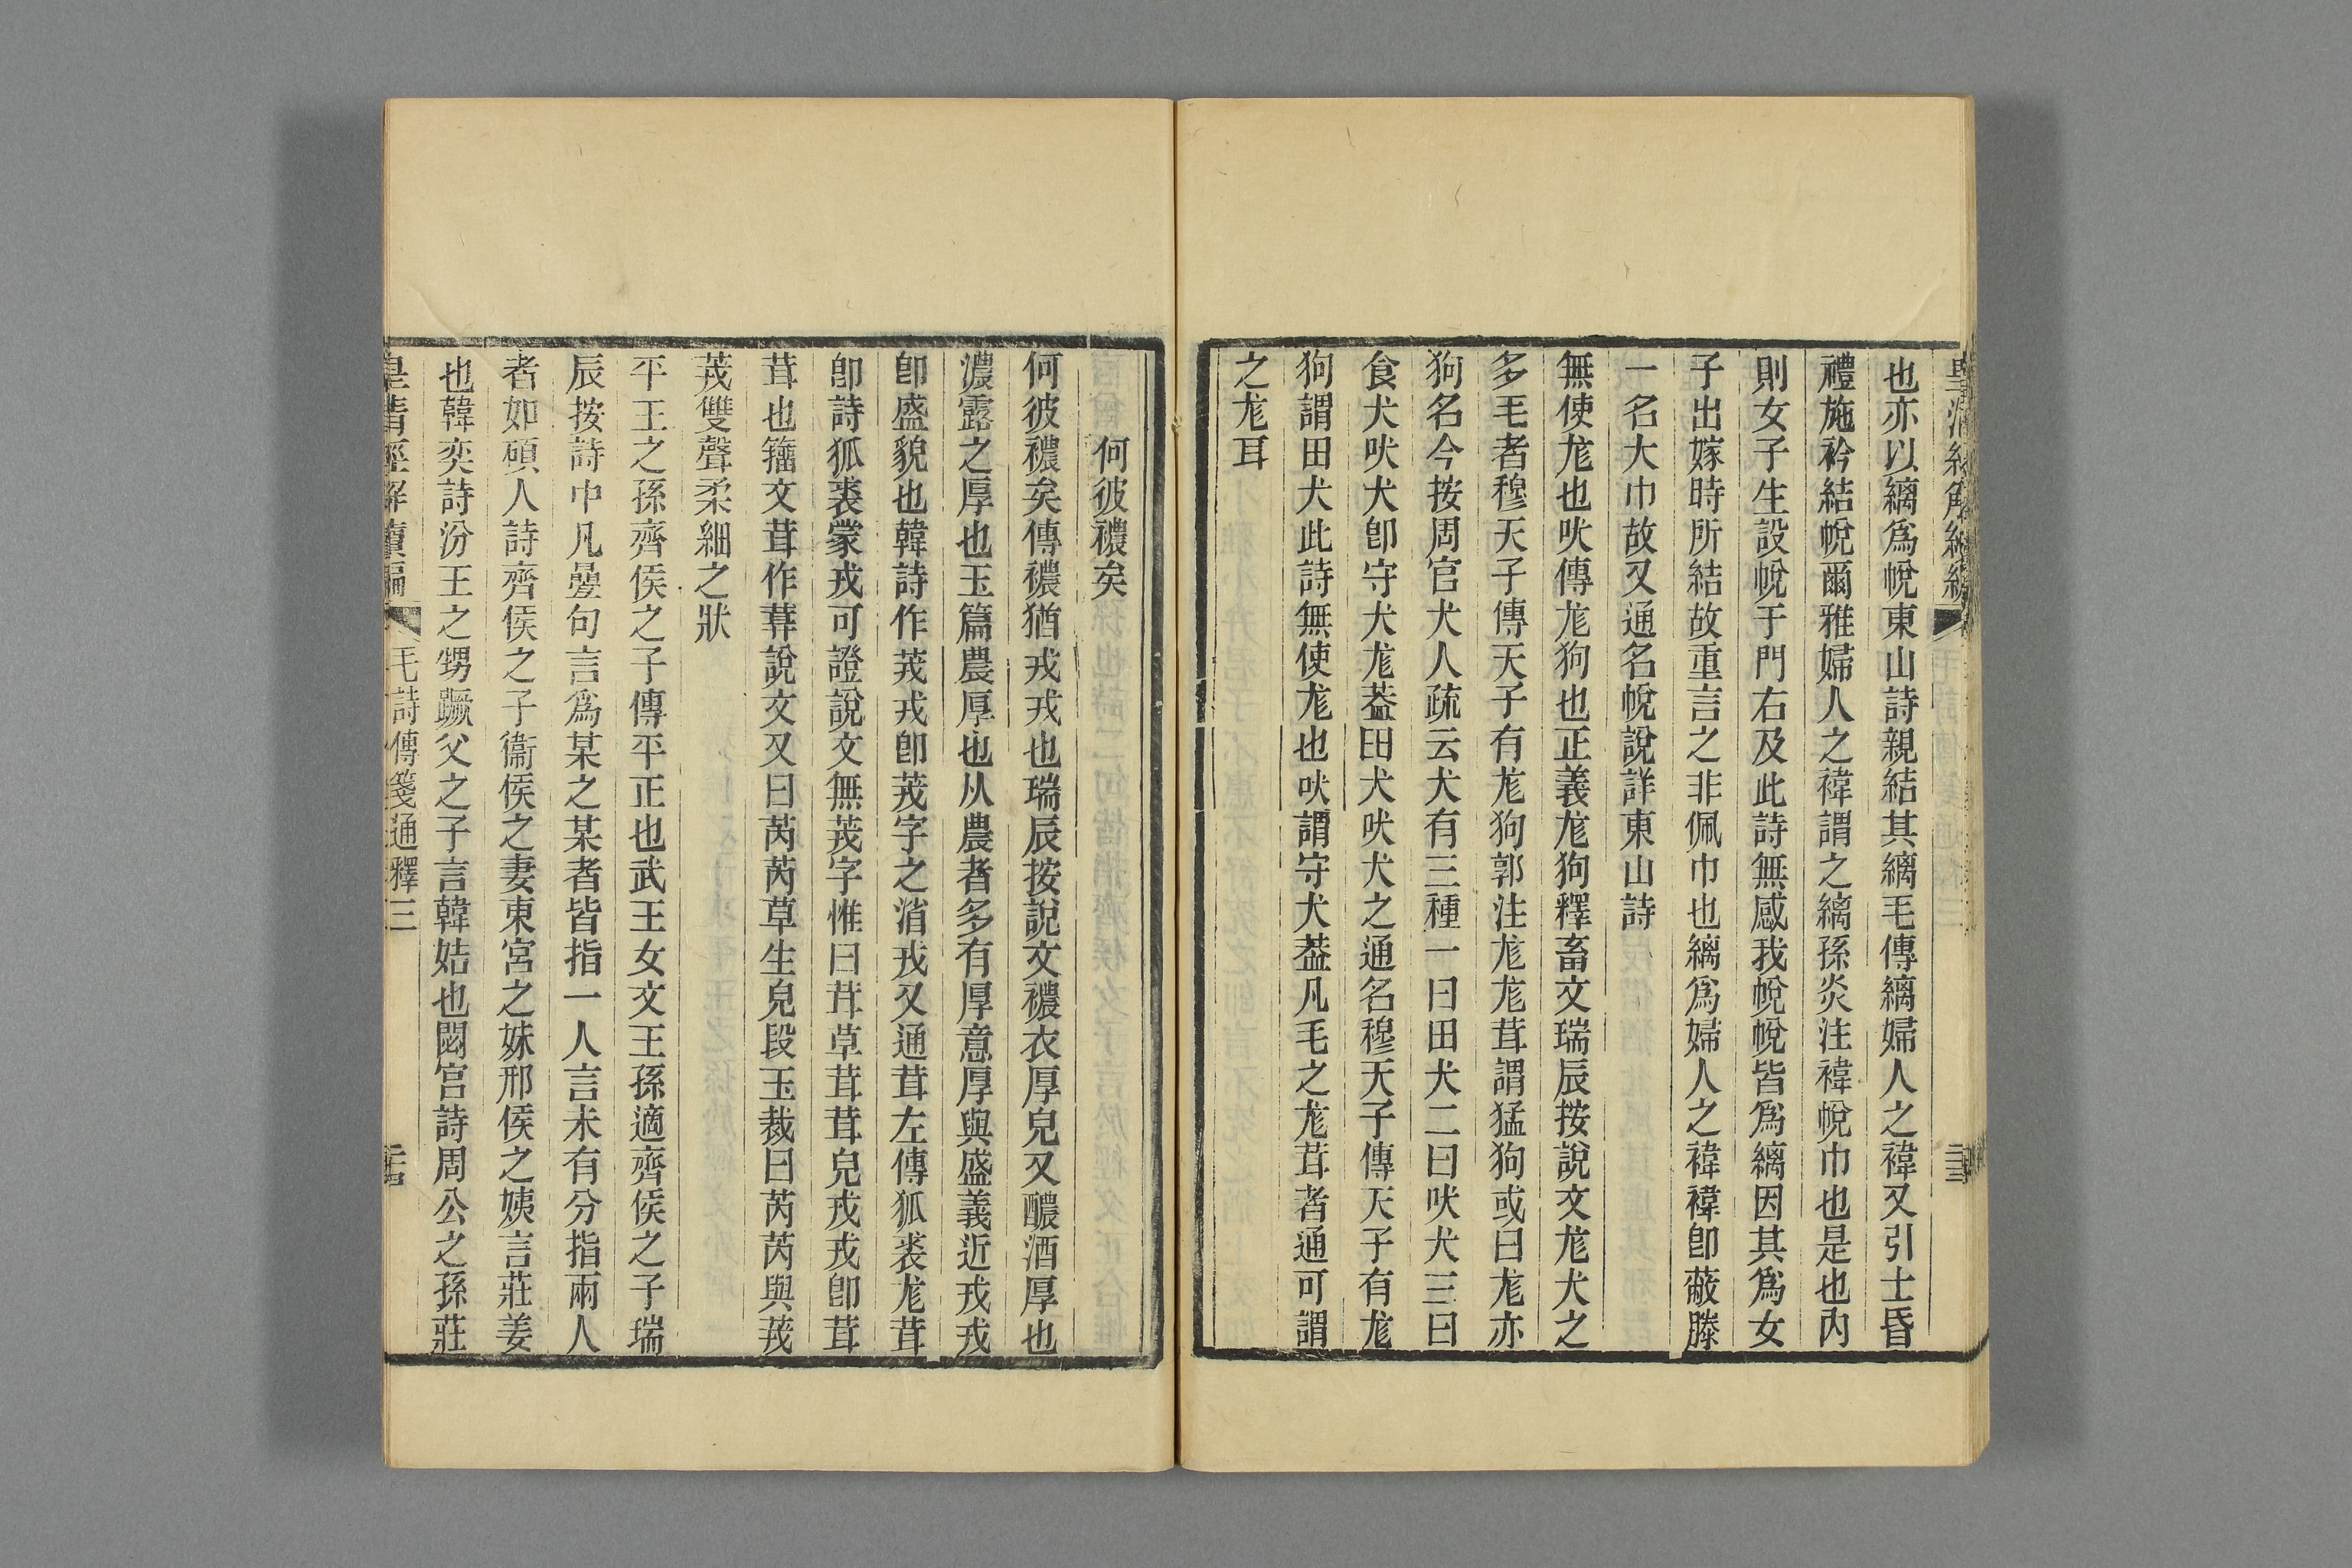 也亦以縭爲帨東山詩親結其縭毛傳縭婦人之褘又引士昏
禮施衿結帨爾雅婦人之褘謂之縭孫炎注褘帨巾也是也內
則女子生設帨于門右及此詩無感我帨帨皆爲縭因其爲女
子出嫁時所結故重言之非佩巾也縭爲婦人之褘褘卽蔽膝
一名大巾故又通名帨說詳東山詩
無使尨也吠傳尨狗也正義尨狗釋畜文瑞辰按說文尨犬之
多毛者穆天子傳天子有尨狗郭注尨尨茸謂猛狗或曰尨亦
狗名今按周官犬人疏云犬有三種一曰田犬二曰吠犬三曰
食犬吠犬卽守犬尨葢田犬吠犬之通名穆天子傳天子有尨
狗謂田犬此詩無使尨也吠謂守犬葢凡毛之尨茸者通可謂
之尨耳
何彼襛矣
何彼襛矣傳襛猶戎戎也瑞辰按說文襛衣厚皃又醲酒厚也
濃露之厚也玉篇農厚也从農者多有厚意厚與盛義近戎戎
卽盛貌也韓詩作茙戎卽茙字之消戎又通茸左傳狐裘尨茸
卽詩狐裘蒙戎可證說文無茙字惟曰茸草茸茸皃戎戎卽茸
茸也籒文茸作䒠說文又曰芮芮草生皃段玉裁曰芮芮與茙
茙雙聲柔細之狀
平王之孫齊侯之子傳平正也武王女文王孫適齊侯之子瑞
辰按詩中凡疊句言爲某之某者皆指一人言未有分指兩人
者如碩人詩齊侯之子衞侯之妻東宮之妹邢侯之姨言莊姜
也韓奕詩汾王之甥蹶父之子言韓姞也閟宮詩周公之孫莊
皇清經解續編 毛詩傳箋通釋三